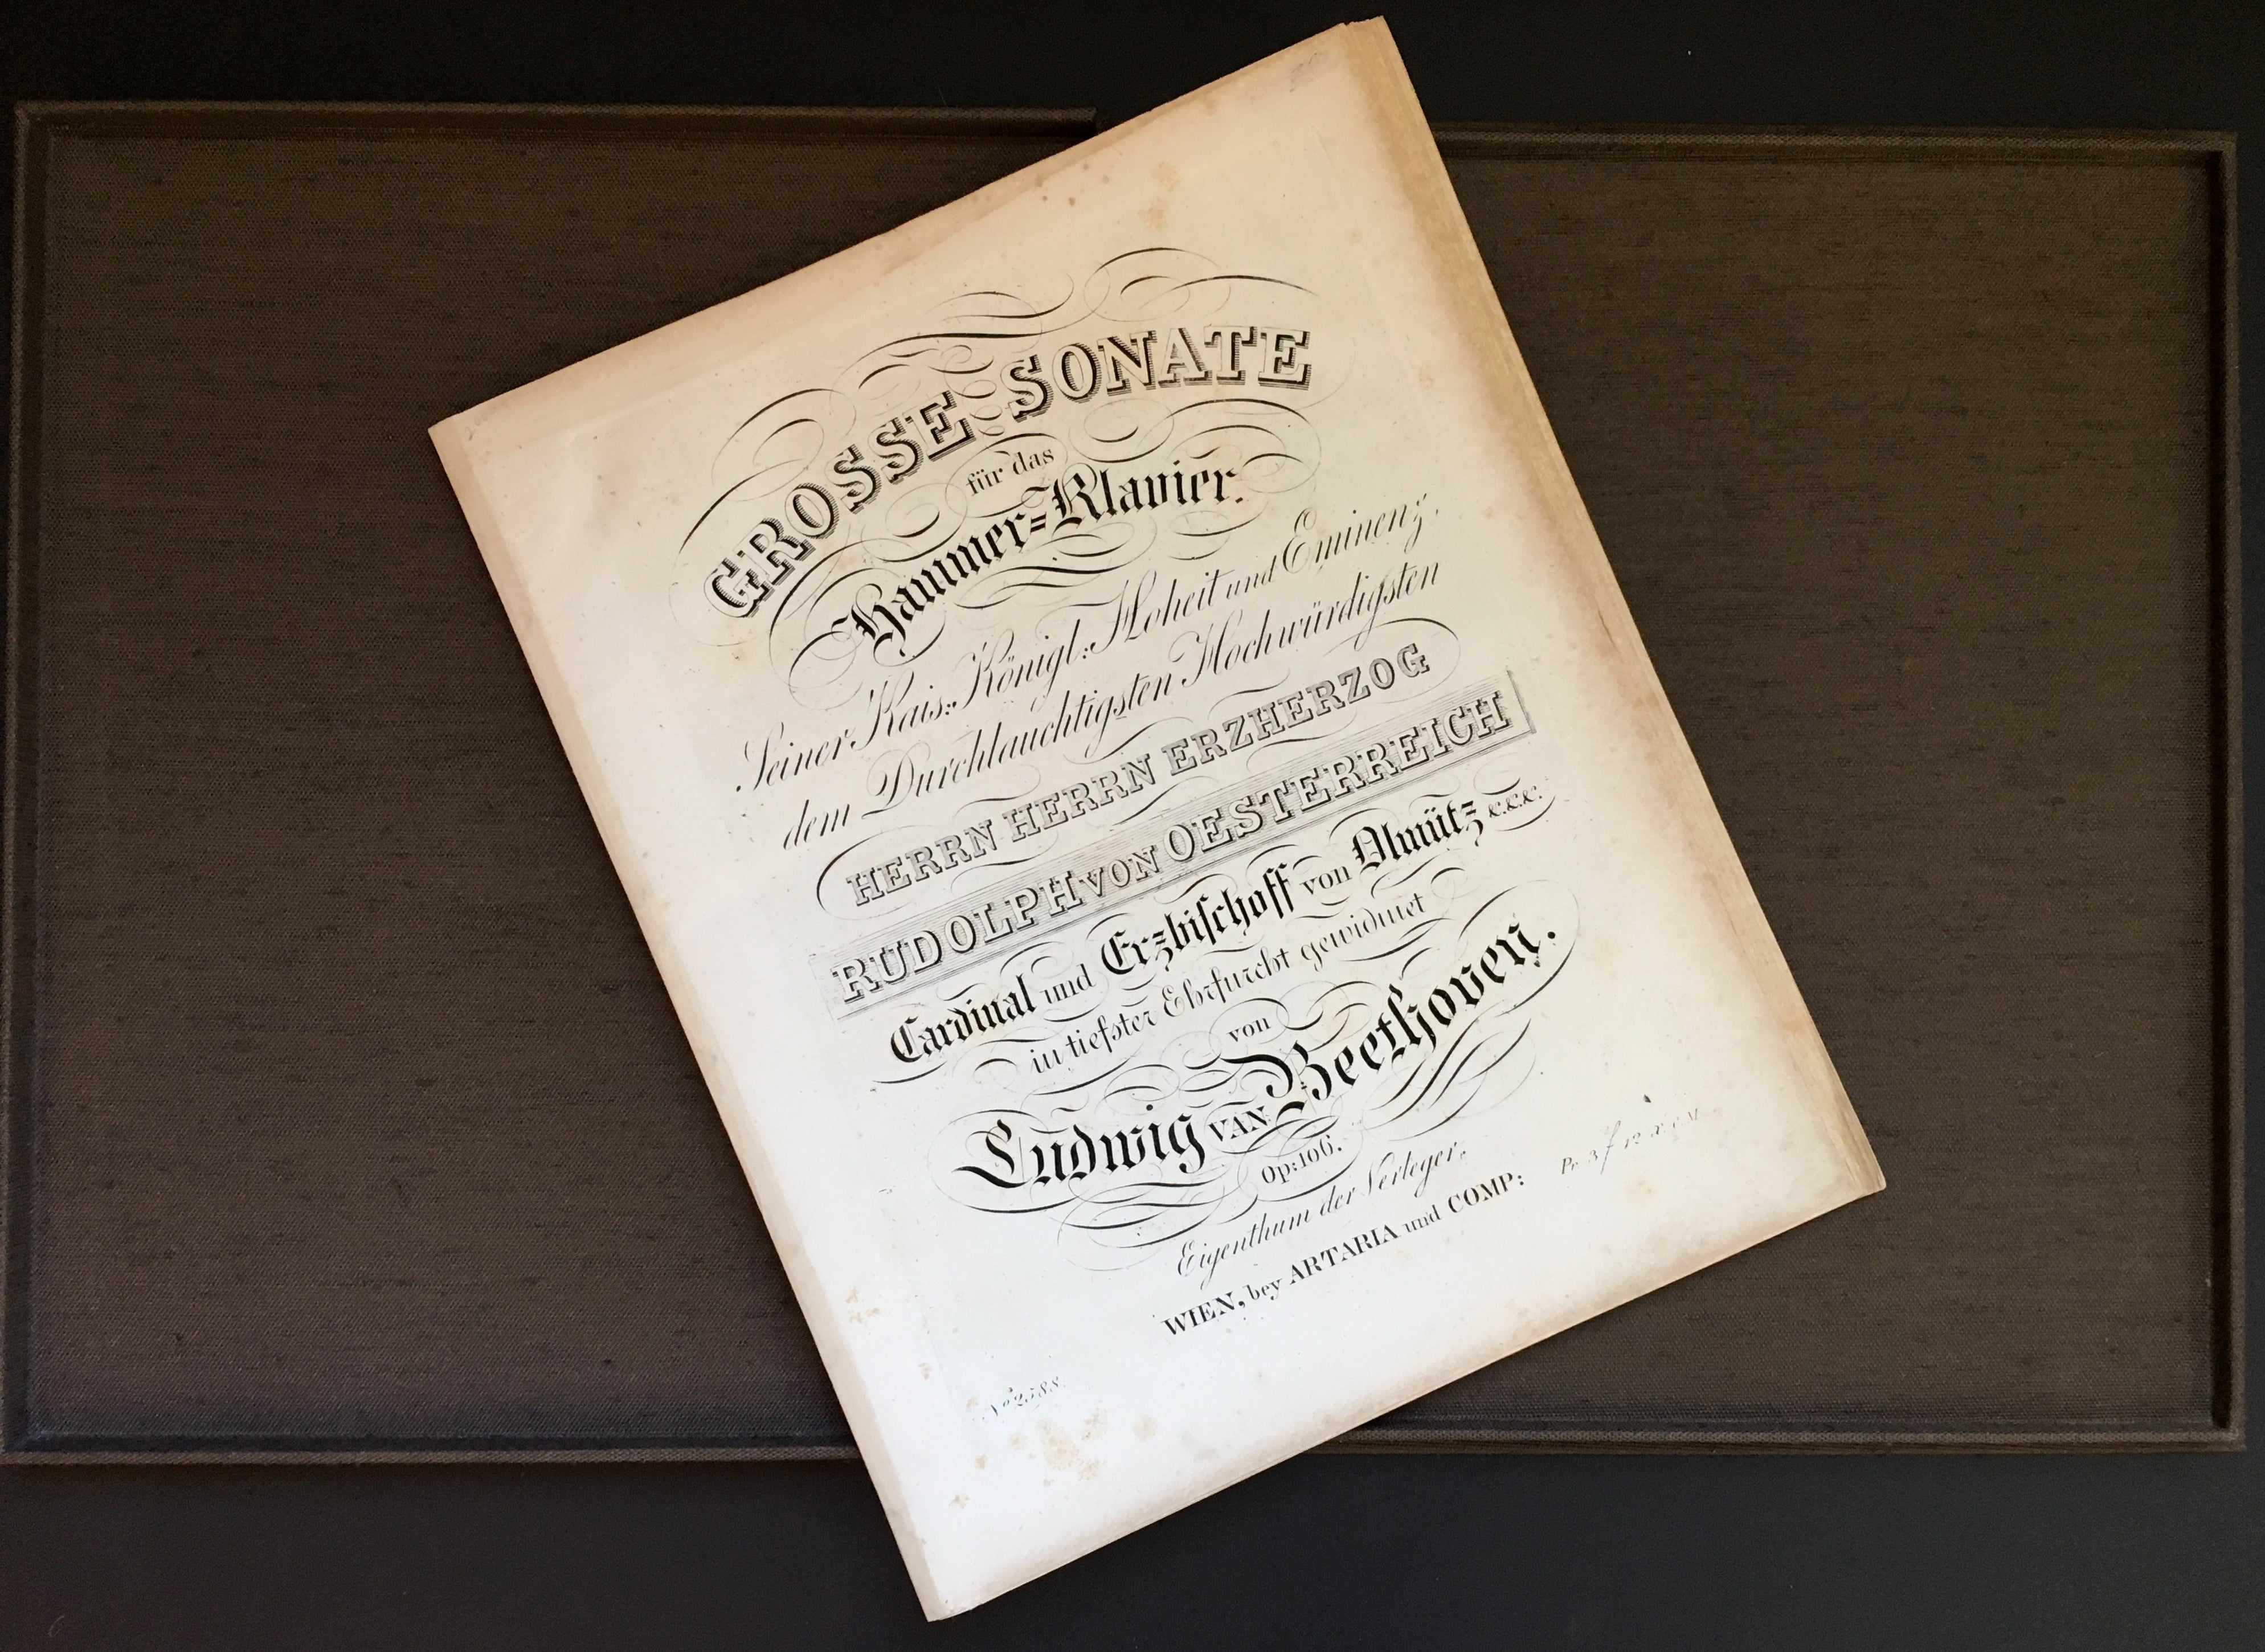 GROSSE SONATE
für das
Hammer=Klavier.
Seiner Kais: Königl: Hoheit und Eminenz,
dem Durchlauchtigsten Hochwürdigsten
HERRN HERRN ERZHERZOG
RUDOLPH VON OESTERREICH
Cardinal und Erzbischoff von Olmütz &.&.&.
in tiefster Ehrfurcht gewidmet
von
Ludwig VAN Beethoven.
Op: 106.
Eigenthum der Verleger.
WIEN, bey ARTARIA und COMP:
No 2588.